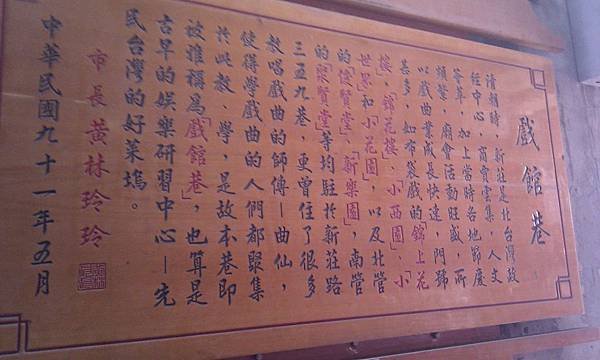 戲館巷
清朝時，新莊是北台灣政
經中心，商賈雲集，人文
薈萃，加上當時各地節慶
頻繁，廟會活動旺盛，所
以戲曲業成長快速，門號
甚多，如布袋戲的「錦上花
樓、錦花樓、小西園、「小
世界」和小花園，以及北管
的「俊賢堂、「新樂園」，南管
的「聚賢堂」等均駐於新莊路
三五九巷，更曾住了很多
教唱戲曲的師傅－曲仙，
使得學戲曲的人們都聚集
於此教、學，是故本巷即
被雅稱為「戲館巷」，也算是
古早的娛樂研習中心－先
民台灣的好萊塢。
市長黃林玲玲
中華民國九十一年五月